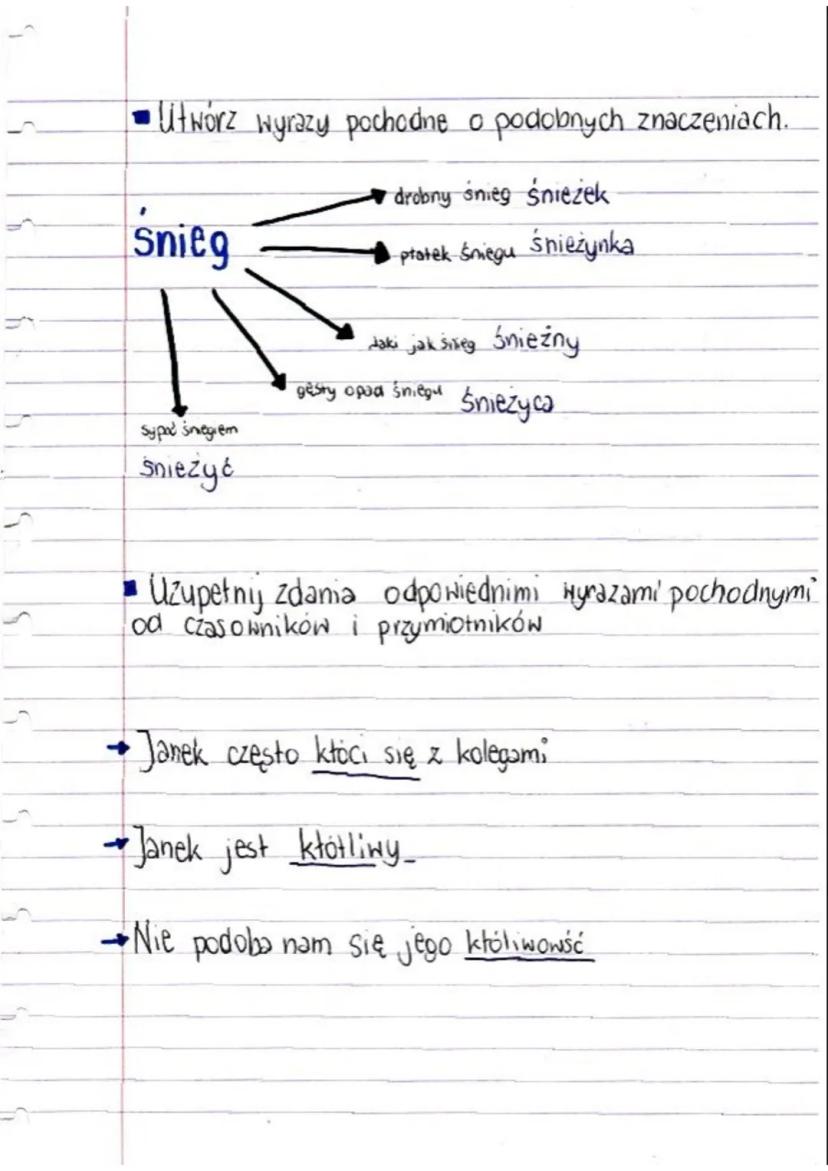 ▪ Utwórz wyrazy pochodne o podobnych znaczeniach.
drobny śnieg śnieżek
śnieg
płatek śniegu śnieżynka
taki jak śnieg śnieżny
gęsty opad śniegu śnieżyca
sypać śniegiem
śnieżyć
▪ Uzupełnij zdania odpowiednimi wyrazami pochodnymi
od czasowników i przymiotników
→ Janek często kłóci się z kolegami
→ Janek jest kłótliwy
→ Nie podoba nam się jego kłóliwowść